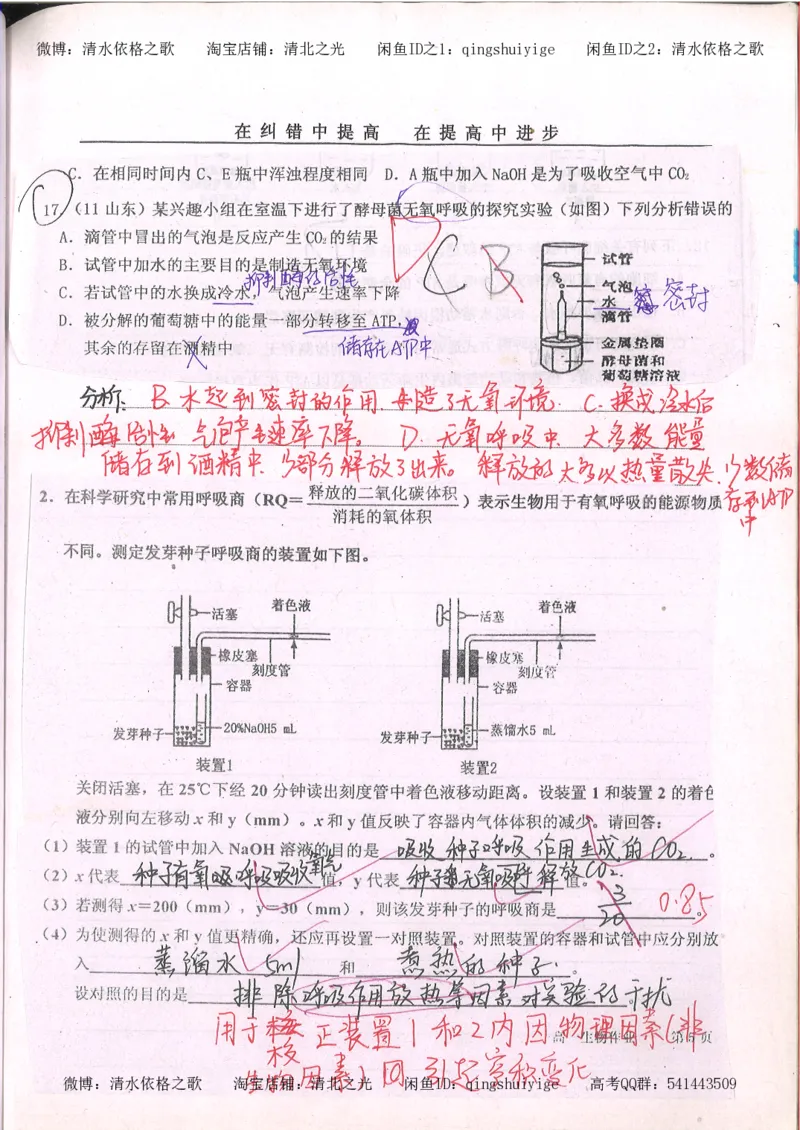 微博：清水依格之歌 淘宝店铺：清北之光 闲鱼ID之1：qingshuiyige 闲鱼ID之2：清水依格之歌
在纠错中提高 在提高中进步
C．在相同时间内 C、E 瓶中浑浊程度相同 D．A 瓶中加入 NaOH 是为了吸收空气中 CO₂
17．（11 山东）某兴趣小组在室温下进行了酵母菌无氧呼吸的探究实验（如图）下列分析错误的
D C B
A．滴管中冒出的气泡是反应产生 CO₂ 的结果
B．试管中加水的主要目的是制造无氧环境
抑制酶的活性
C．若试管中的水换成冷水，气泡产生速率下降
D．被分解的葡萄糖中的能量一部分转移至 ATP，
其余的存留在酒精中
储能ATP中
试管
气泡
水 密封
滴管
金属垫圈
酵母菌和
葡萄糖溶液
分析: B 水起到密封的作用，制造了无氧环境. C. 换成冷水后
抑制酶活性 气泡产生速率下降。 D. 无氧呼吸中，大多数能量
储存到酒精中，少部分释放了出来。释放的大多以热量散失，少数储
存到ATP
中
2．在科学研究中常用呼吸商（RQ＝释放的二氧化碳体积/消耗的氧体积）表示生物用于有氧呼吸的能源物质
不同。测定发芽种子呼吸商的装置如下图。
活塞 着色液
橡皮塞
刻度管
容器
发芽种子 20%NaOH5 mL
装置1
活塞 着色液
橡皮塞
刻度管
容器
发芽种子 蒸馏水5 mL
装置2
关闭活塞，在 25℃下经 20 分钟读出刻度管中着色液移动距离。设装置 1 和装置 2 的着色
液分别向左移动 x 和 y（mm）。x 和 y 值反映了容器内气体体积的减少。请回答：
（1）装置 1 的试管中加入 NaOH 溶液的目的是 吸收种子呼吸作用生成的CO₂ 。
（2）x 代表 种子有氧呼吸吸收氧气 值，y 代表 种子无氧呼吸释放CO₂ 值。
（3）若测得 x＝200（mm），y＝30（mm），则该发芽种子的呼吸商是 3/20 。 0.85
（4）为使测得的 x 和 y 值更精确，还应再设置一对照装置。对照装置的容器和试管中应分别放
入 蒸馏水 5ml 和 煮熟的种子 。
设对照的目的是 排除呼吸作用放热等因素对实验的干扰
用于校正装置1和2内因物理因素(非
生物因素)因引起容积变化
高一生物作业 第5页
微博：清水依格之歌 淘宝店铺：清北之光 闲鱼ID：qingshuiyige 高考QQ群：541443509